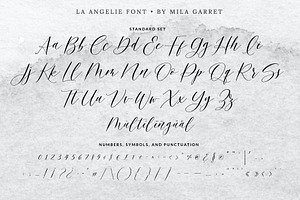 LA ANGELIE FONT • BY MILA GARRET
STANDARD SET
Aa Bb Cc Dd Ee Ff Gg Hh Ii
Jj Kk Ll Mm Nn Oo Pp Qq Rr Ss
Tt Uu Vv Ww Xx Yy Zz
Multilingual
NUMBERS, SYMBOLS, AND PUNCTUATION